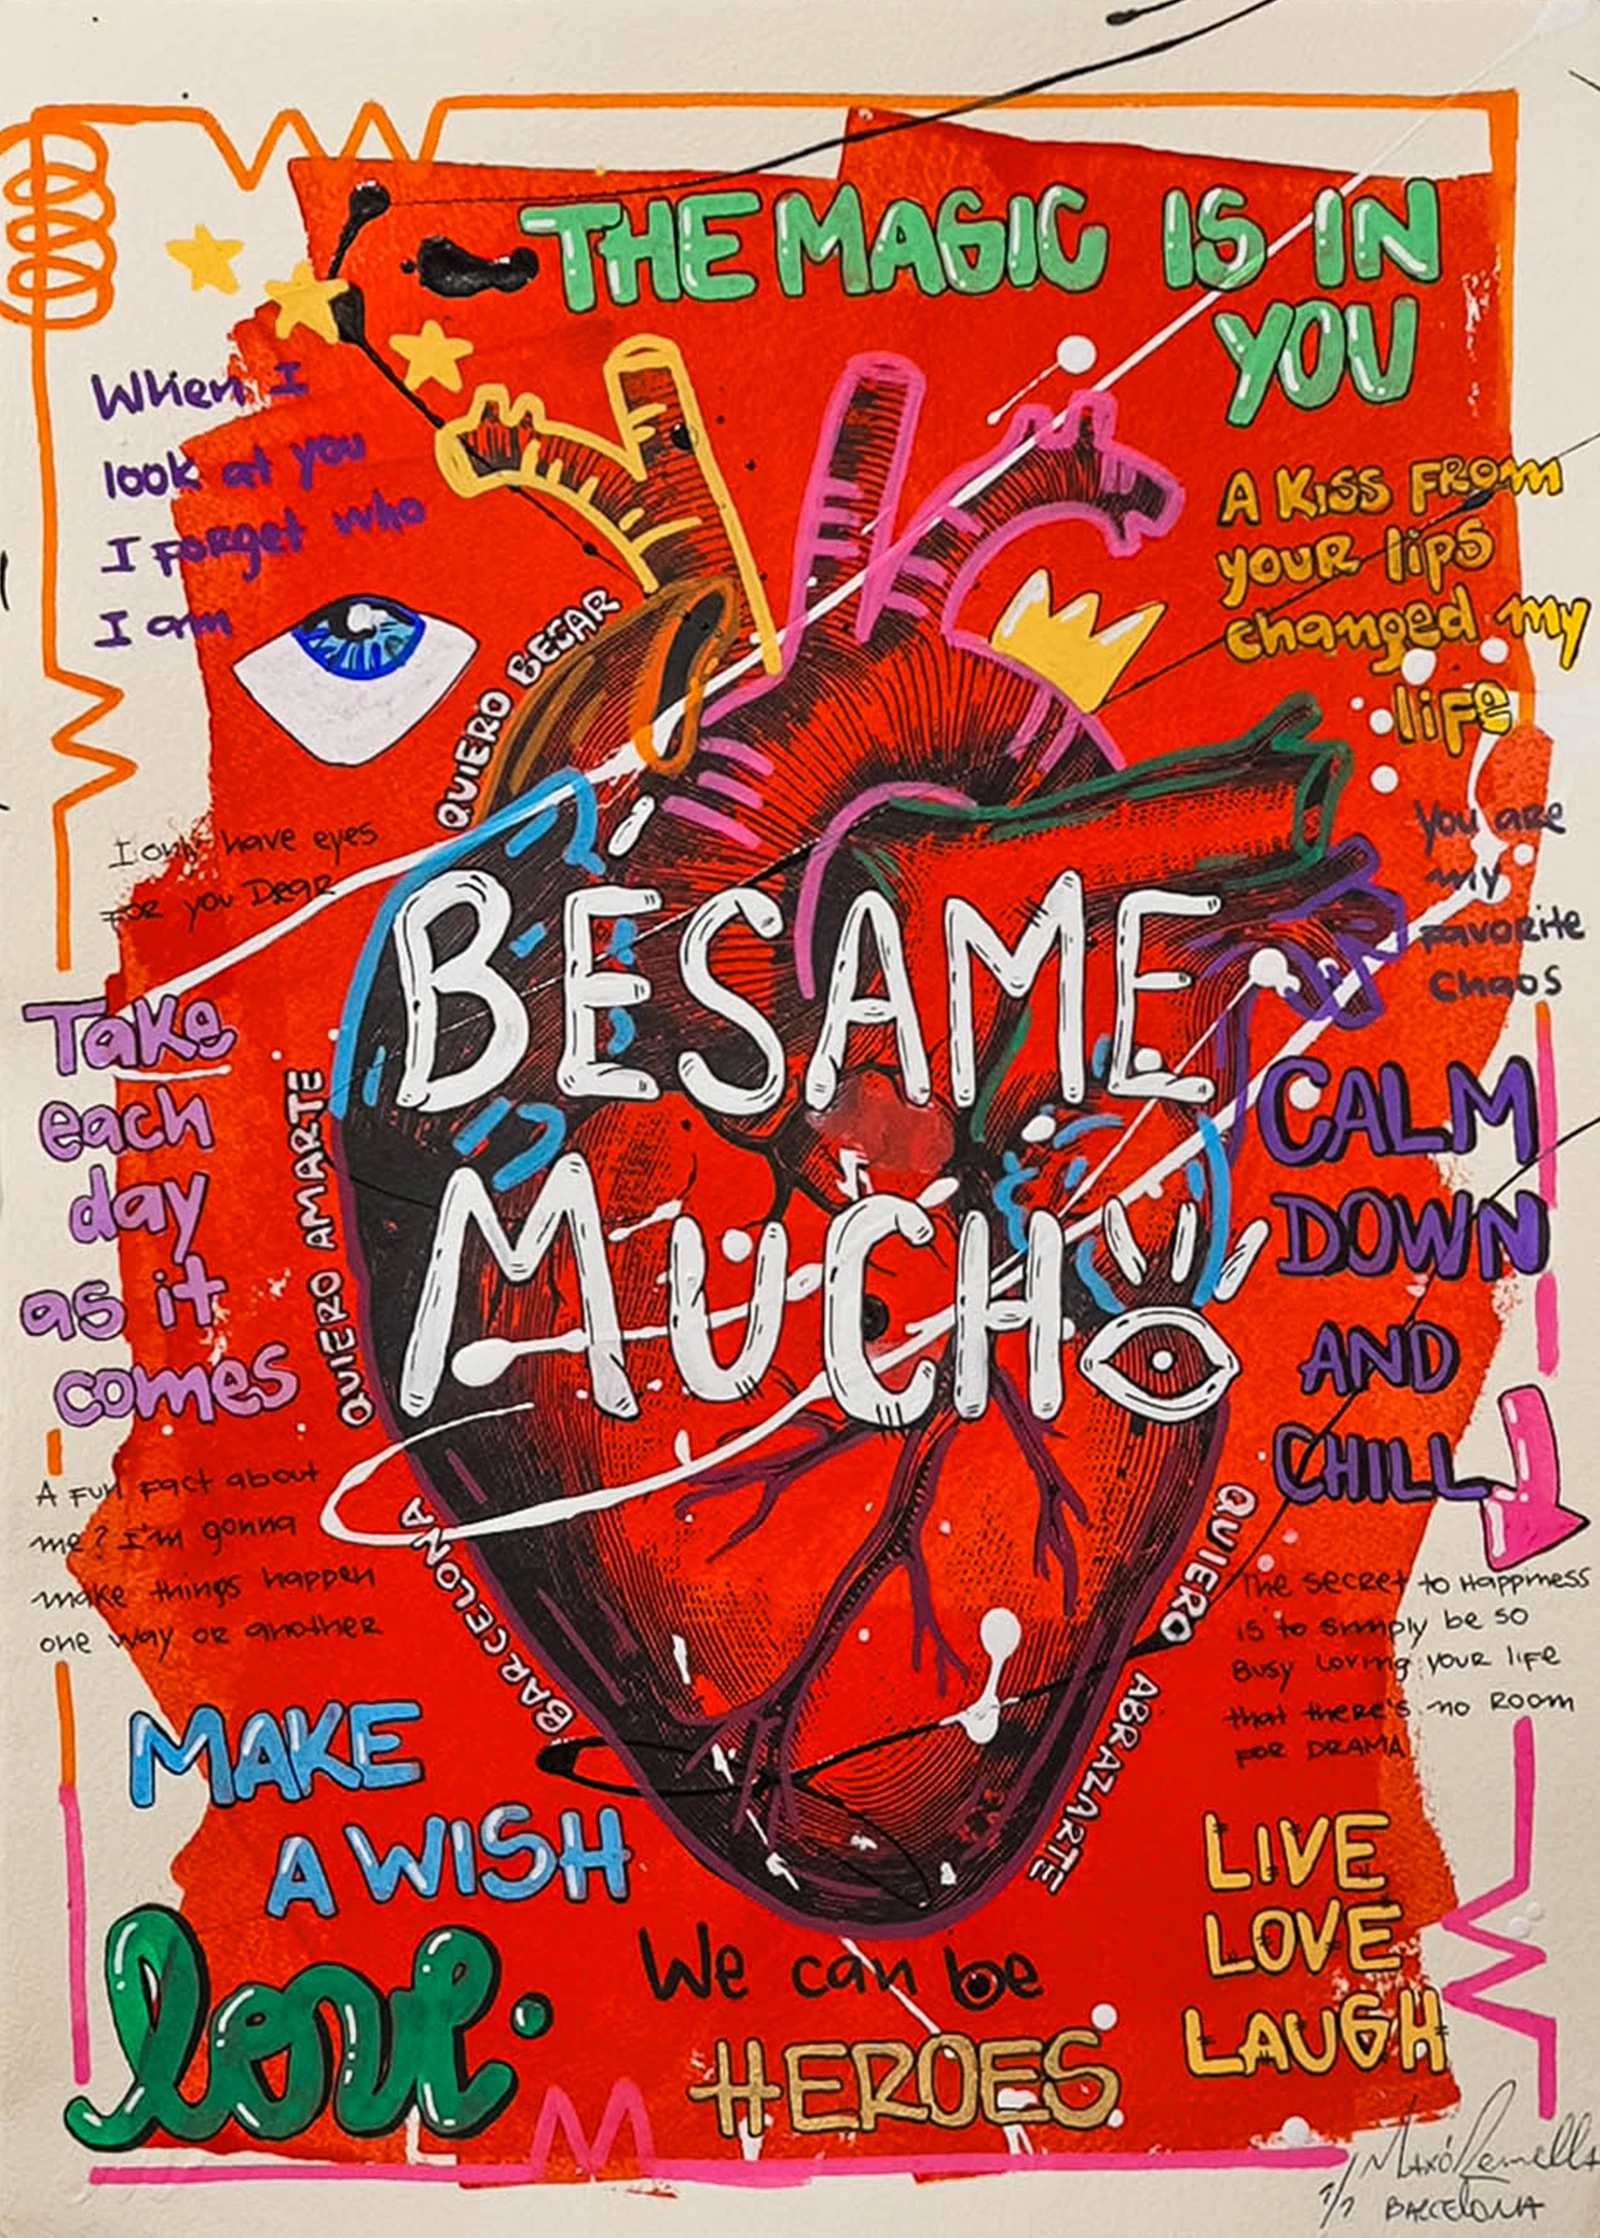 THE MAGIC IS IN
YOU
When I
look at you
I forget who
I am
A KISS FROM
YOUR lips
changed my
life
QUIERO BESAR
I only have eyes
FOR you DeaR
You are
my
FavoRite
Chaos
BÉSAME
MUCHO
Take
each
day
as it
comes
QUIERO AMARTE
CALM
DOWN
AND
CHILL
A FUN Fact about
me? I'm gonna
make things happen
one way oR anotheR
BARCELONA
QUIERO ABRAZARTE
The secRet to Happiness
is to simply be so
Busy Loving youR life
that theRe's no Room
FOR DRAMA
MAKE
A WISH
love.
We can be
HEROES
LIVE
LOVE
LAUGH
1/1
BARCELONA